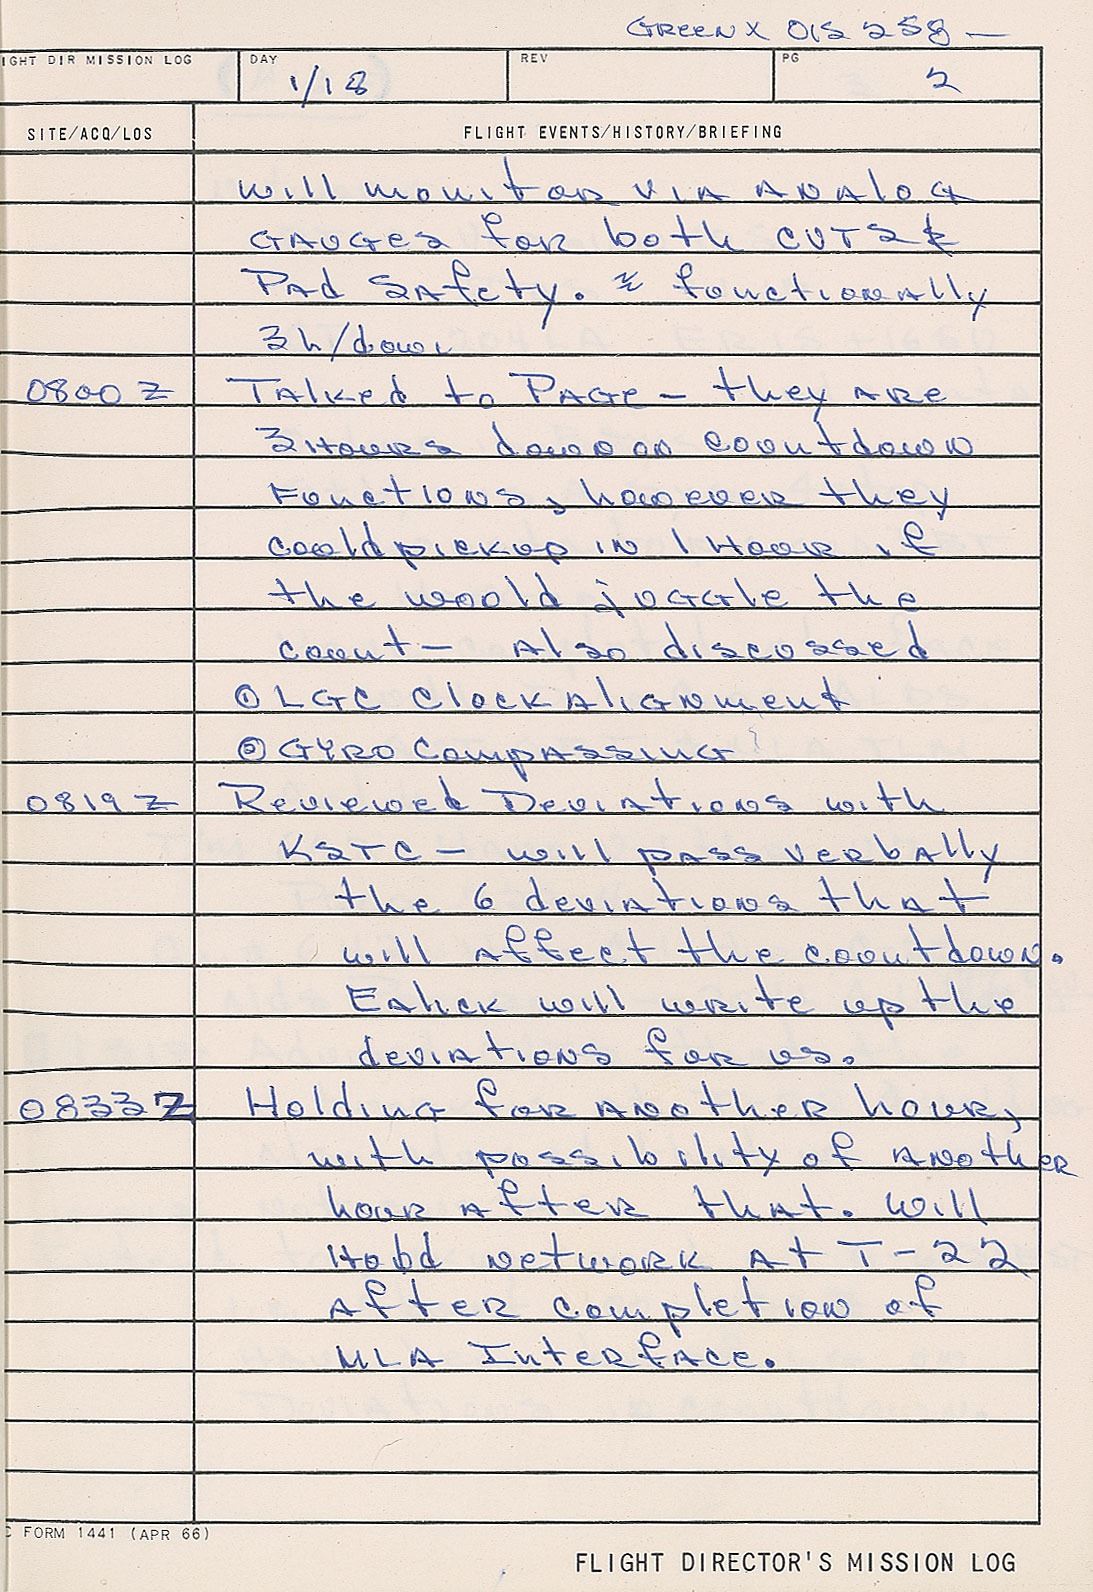 GREEN X OIS 258 —
IGHT DIR MISSION LOG DAY 1/18 REV PG 2
SITE/ACQ/LOS FLIGHT EVENTS/HISTORY/BRIEFING
will monitor VIA ANAlOG
GAUGES for both CVTS &
PAd SAfety. functionally
3h/down
0800 Z TAlked to PAGE – they ARE
3 HOURS down on countdown
Functions, however they
could pickup IN 1 HOUR if
the would juggle the
count – Also discussed
① LGC ClockAlignment
② GYRO CompASSING
0819 Z Reviewed DeviAtions with
KSTC – will pass verbAlly
the 6 deviAtions thAt
will Affect the countdown.
will write up the
deviAtions for us.
0833 Z Holding for ANother hour,
with possibility of ANother
hour After thAt. Will
Hold NetwoRK At T-22
After completion of
MLA InteRfAce.
C FORM 1441 (APR 66)
FLIGHT DIRECTOR'S MISSION LOG